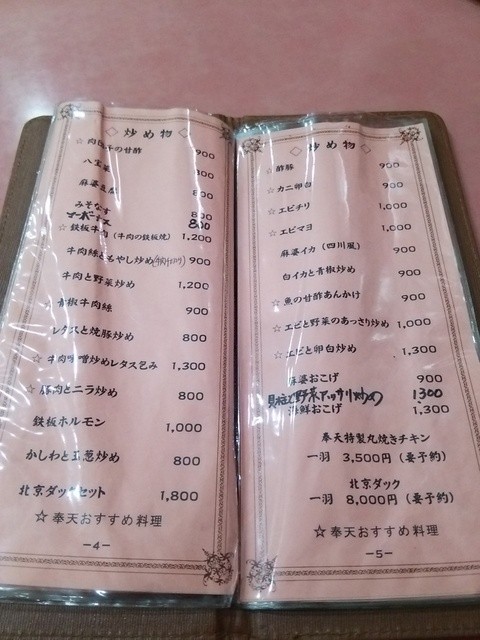 ◇炒め物◇
☆肉団子の甘酢 900
八宝菜 800
麻婆豆腐 800
みそなす 800
マーボーナス 800
☆鉄板牛肉(牛肉の鉄板焼) 1,200
牛肉絲ともやし炒め 900
牛肉と野菜炒め 1,200
青椒牛肉絲 900
レタスと焼豚炒め 800
☆牛肉味噌炒めレタス包み 1,300
☆豚肉とニラ炒め 800
鉄板ホルモン 1,000
かしわと玉葱炒め 800
北京ダックセット 1,800
☆奉天おすすめ料理
–4–
◇炒め物◇
☆酢豚 900
☆カニ卵白 900
☆エビチリ 1,000
☆エビマヨ 1,000
麻婆イカ(四川風) 900
白イカと青椒炒め 900
☆魚の甘酢あんかけ 900
☆エビと野菜のあっさり炒め 1,000
☆エビと卵白炒め 1,300
麻婆おこげ 900
貝柱と野菜アッサリ炒め 1300
海鮮おこげ 1,300
奉天特製丸焼きチキン
一羽 3,500円(要予約)
北京ダック
一羽 8,000円(要予約)
☆奉天おすすめ料理
–5–